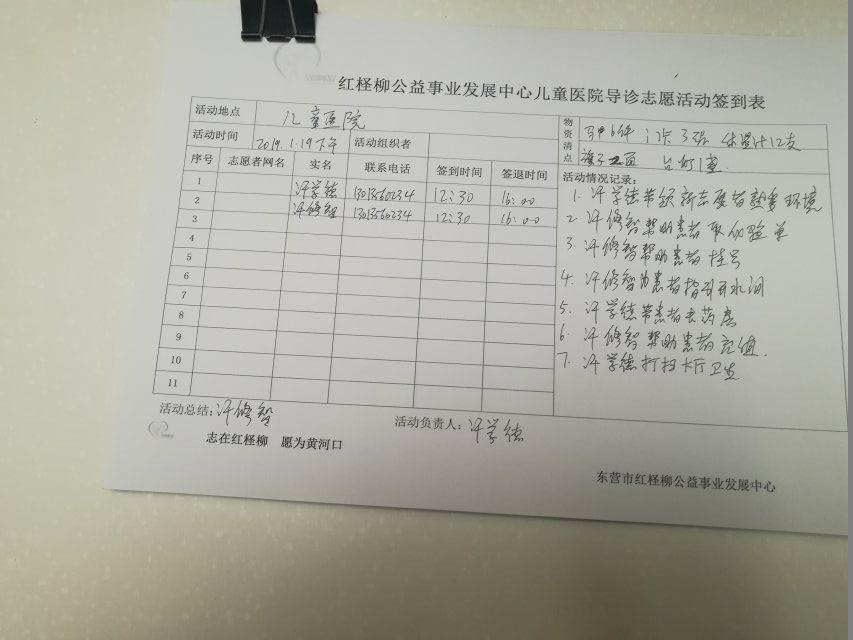 红柽柳公益事业发展中心儿童医院导诊志愿活动签到表
活动地点 儿童医院 物资清点 马甲6件 门卡3张 体温计12支
活动时间 2019.1.19下午 活动组织者 旗子 台灯1盏
序号 志愿者网名 实名 联系电话 签到时间 签退时间 活动情况记录:
1 汗学德 13013560234 12:30 16:00
2 汗修智 13013560234 12:30 16:00
3
4
5
6
7
8
9
10
11
1. 汗学德带领新志愿者熟悉环境
2 汗修智帮助患者取化验单
3. 汗修智帮助患者挂号
4. 汗修智为患者指引开水间
5. 汗学德带患者去药房
6. 汗修智帮助患者充值.
7. 汗学德打扫大厅卫生
活动总结:汗修智 活动负责人:汗学德
志在红柽柳 愿为黄河口
东营市红柽柳公益事业发展中心